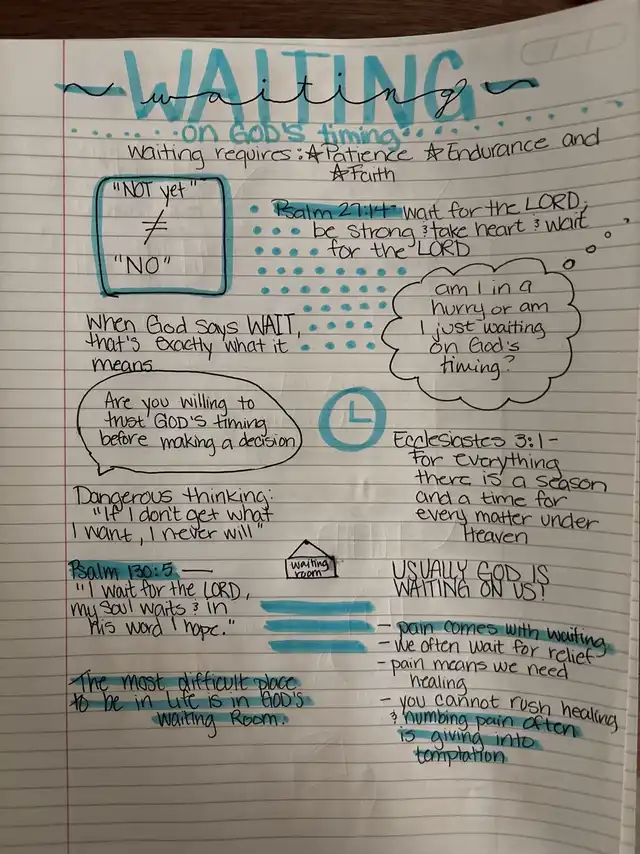 WAITING
waiting
on GOD'S timing
Waiting requires: ☆Patience ☆Endurance and
☆Faith
"NOT yet"
≠
"NO"
Psalm 27:14- wait for the LORD,
be strong & take heart & wait
for the LORD
am I in a
hurry or am
I just waiting
on God's
timing?
When God says WAIT,
that's exactly what it
means
Are you willing to
trust GOD'S timing
before making a decision
Ecclesiastes 3:1-
For everything
there is a season
and a time for
every matter under
Heaven
Dangerous thinking:
"If I don't get what
I want, I never will"
Psalm 130:5 —
"I wait for the LORD,
my soul waits & in
His word I hope."
waiting
room
USUALLY GOD IS
WAITING ON US!
- pain comes with waiting
- we often wait for relief
- pain means we need
healing
- you cannot rush healing
& numbing pain often
is giving into
temptation
The most difficult place
to be in life is in GOD's
Waiting Room.